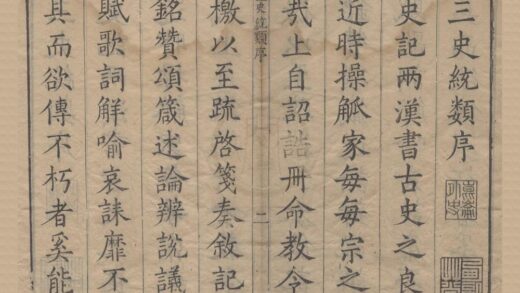 三史統類序
史記兩漢書古史之良
近時操觚家每每宗之
哉上自詔誥冊命教令
統類序
二
檄以至疏啓箋奏敘記
銘贊頌箴述論辨說議
賦歌詞解喻哀誄靡不
具而欲傳不朽者奚能